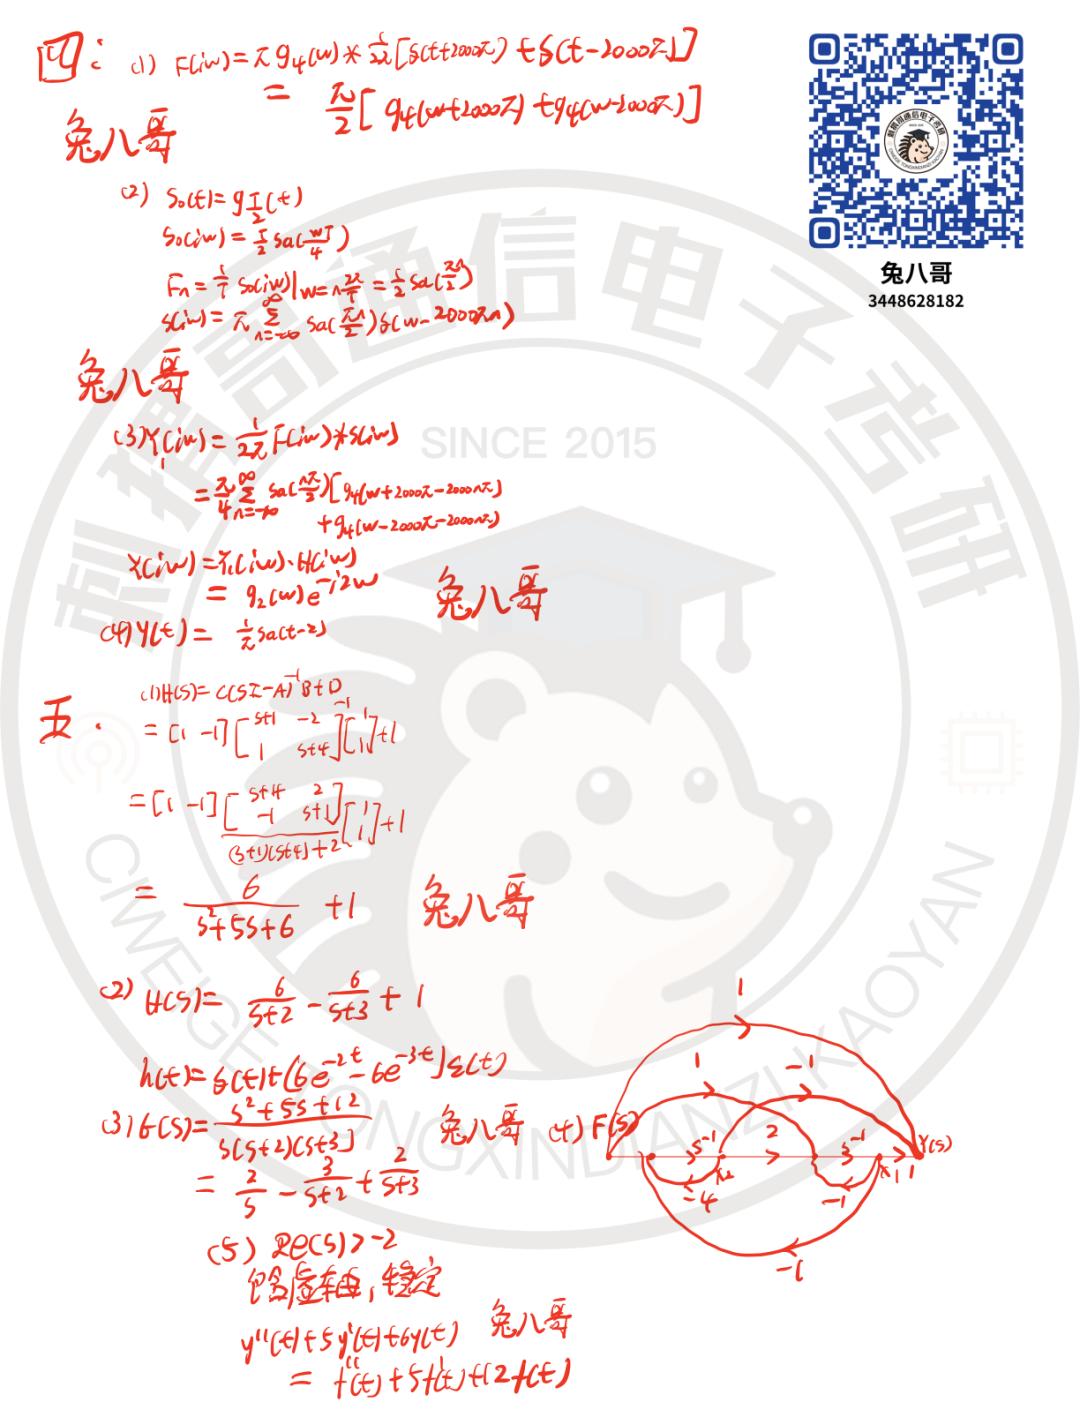 四:
(1) F(iw) = π g₄(w) * 1/2π [δ(t+2000π) + δ(t-2000π)]
= π/2 [g₄(w+2000π) + g₄(w-2000π)]
兔八哥
(2) S₀(t) = g_{T/2}(t)
S₀(iw) = T/2 Sa(wT/4)
Fn = 1/T S₀(iw)|w=n 2π/T = 1/2 Sa(πn/2)
S(iw) = π Σ_{n=-∞}^{∞} Sa(πn/2) δ(w-2000πn)
兔八哥
(3) Y₁(iw) = 1/2π F(iw) * S(iw)
= π/4 Σ_{n=-∞}^{∞} Sa(nπ/2) [g₄(w+2000π-2000nπ)
+ g₄(w-2000π-2000nπ)]
Y(iw) = Y₁(iw)·H(iw)
= g₂(w) e^{-i2w}
兔八哥
(4) y(t) = 1/π Sa(t-2)
五.
(1) H(s) = C(sI-A)⁻¹B+D
= [1 -1] [s+1 -2; 1 s+4]⁻¹ [1; 1] + 1
= [1 -1] [s+4 2; -1 s+1] / (s+1)(s+4)+2 [1; 1] + 1
= 6/(s²+5s+6) + 1
兔八哥
(2) H(s) = 6/(s+2) - 6/(s+3) + 1
h(t) = δ(t) + (6e^{-2t} - 6e^{-3t}) ε(t)
(3) G(s) = (s²+5s+12)/(s(s+2)(s+3))
= 2/s - 3/(s+2) + 2/(s+3)
兔八哥
(4) F(s) 1 1 -1 s⁻¹ x₂ 2 s⁻¹ x₁ 1 Y(s)
-4 -1
-1
(5) Re(s) > -2
包含虚轴, 稳定
y''(t)+5y'(t)+6y(t)
兔八哥
= f''(t)+5f'(t)+12f(t)
兔八哥
3448628182
刺猬哥通信电子考研
SINCE 2015
CIWEIGE TONGXINDIANZI KAOYAN